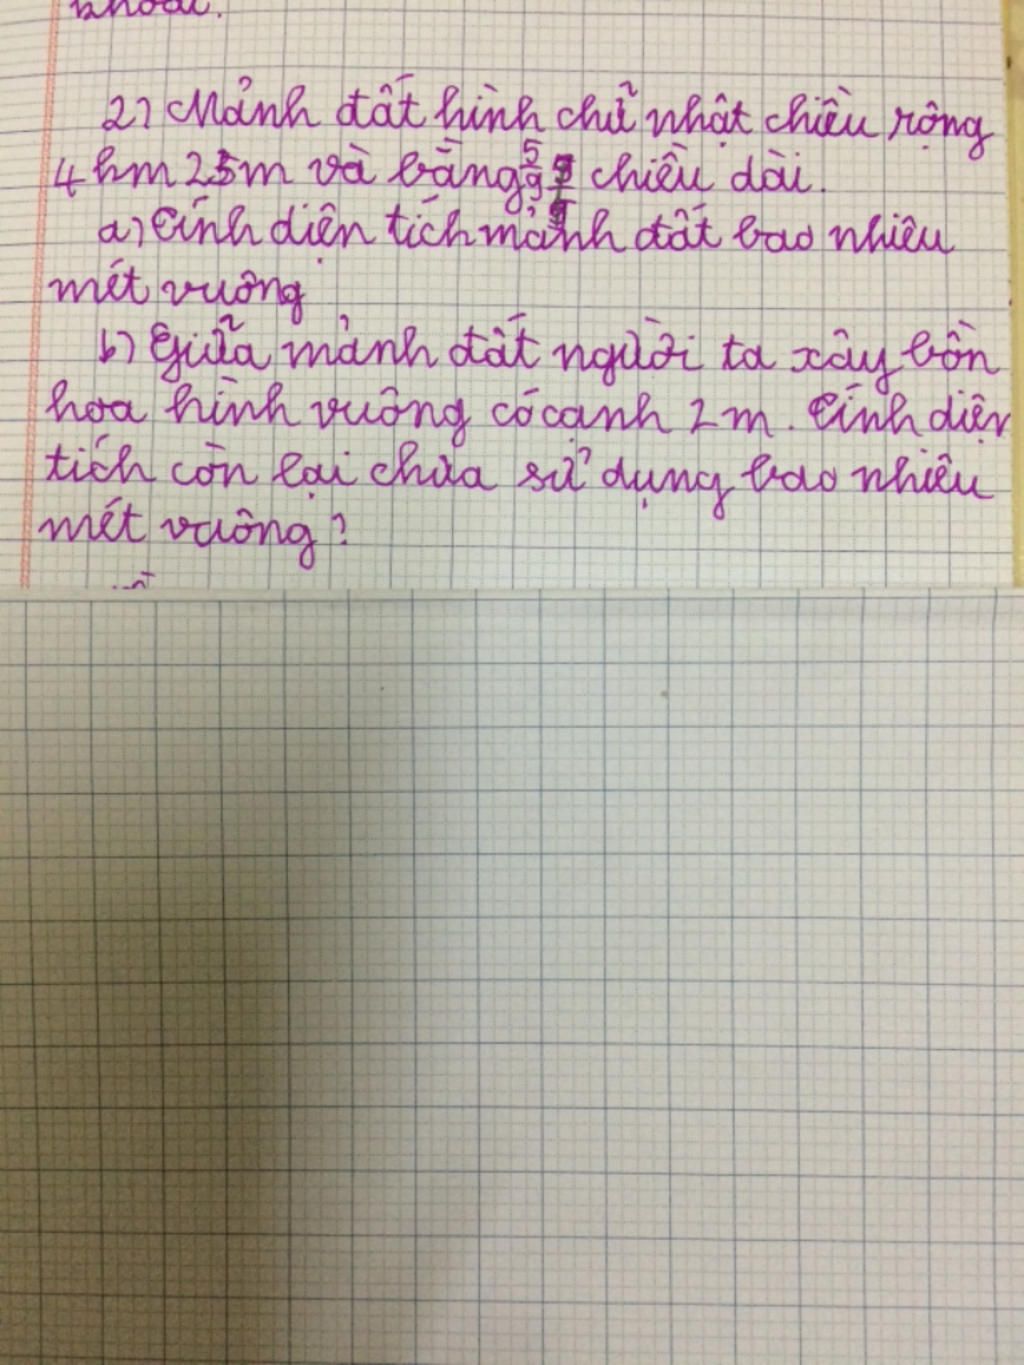 khoai.
2) Mảnh đất hình chữ nhật chiều rộng
4 hm 25m và bằng 5/9 chiều dài.
a) Tính diện tích mảnh đất bao nhiêu
mét vuông
b) Giữa mảnh đất người ta xây bồn
hoa hình vuông có canh 2m. Tính diện
tích còn lại chưa sử dụng bao nhiêu
mét vuông?